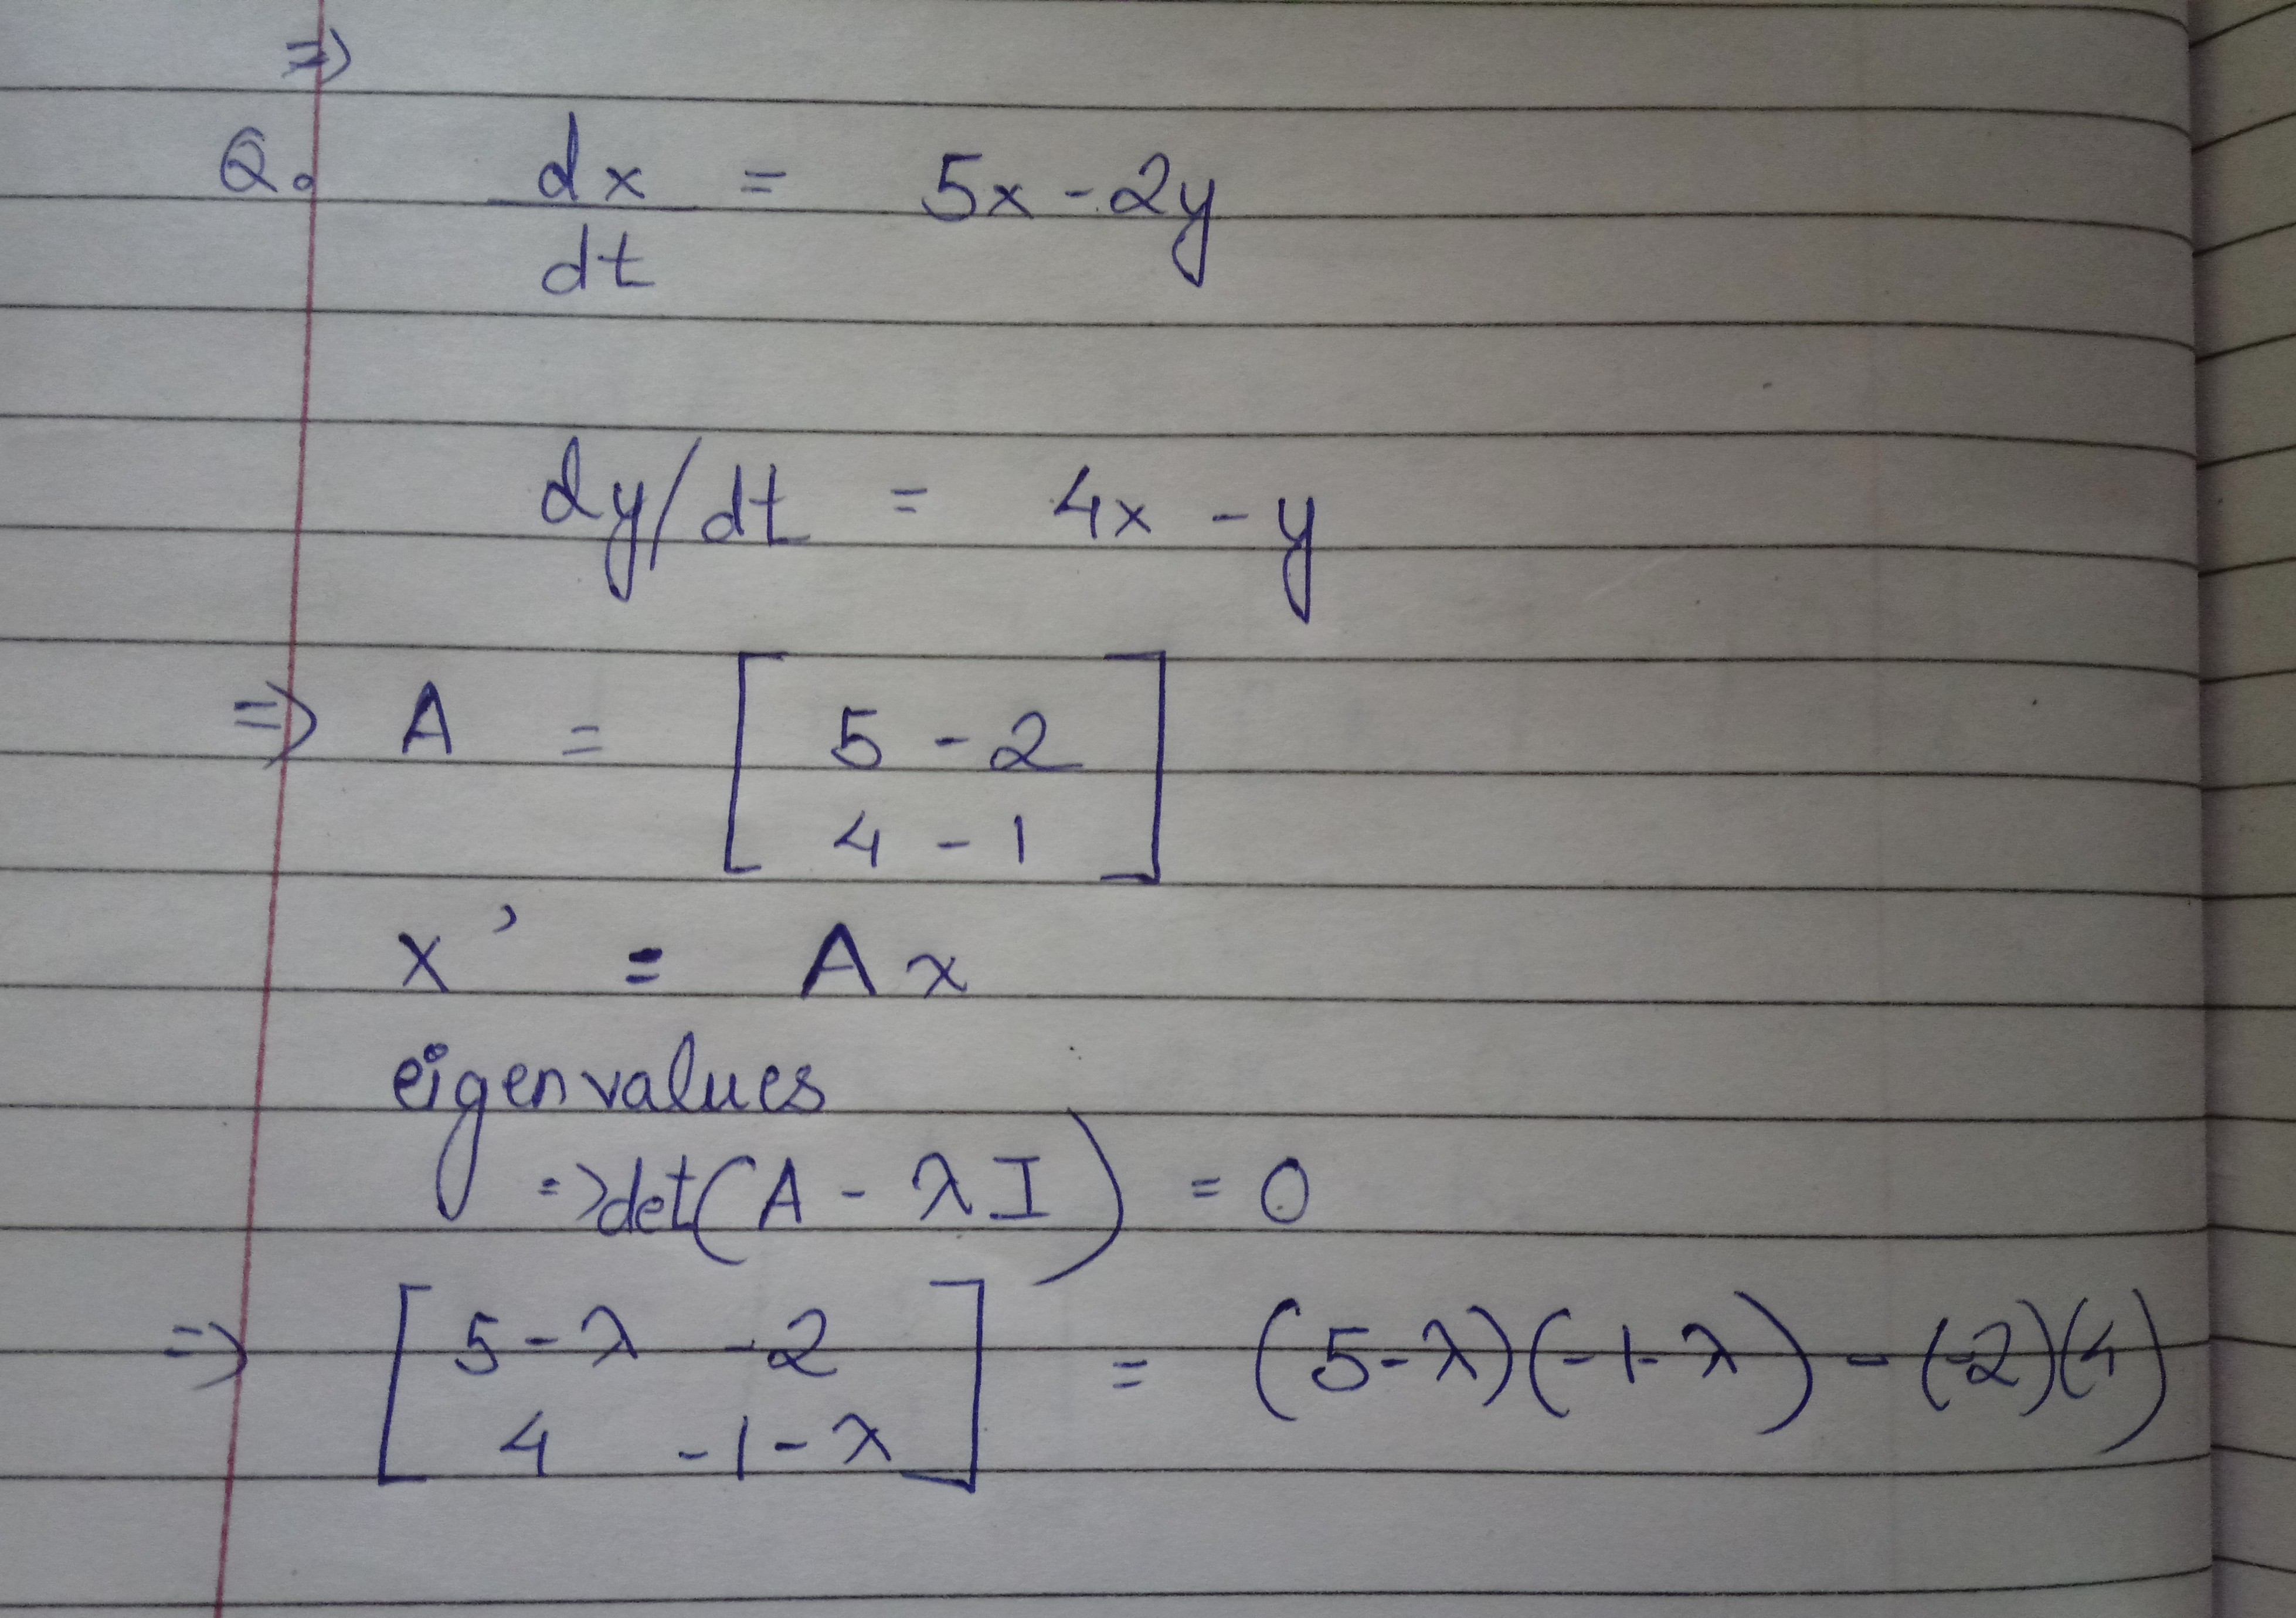 =>
Q. dx/dt = 5x - 2y
dy/dt = 4x - y
=> A = [ 5 -2
4 -1 ]
x' = Ax
eigenvalues
=> det(A - λI) = 0
=> [ 5-λ -2
4 -1-λ ] = (5-λ)(-1-λ) - (-2)(4)